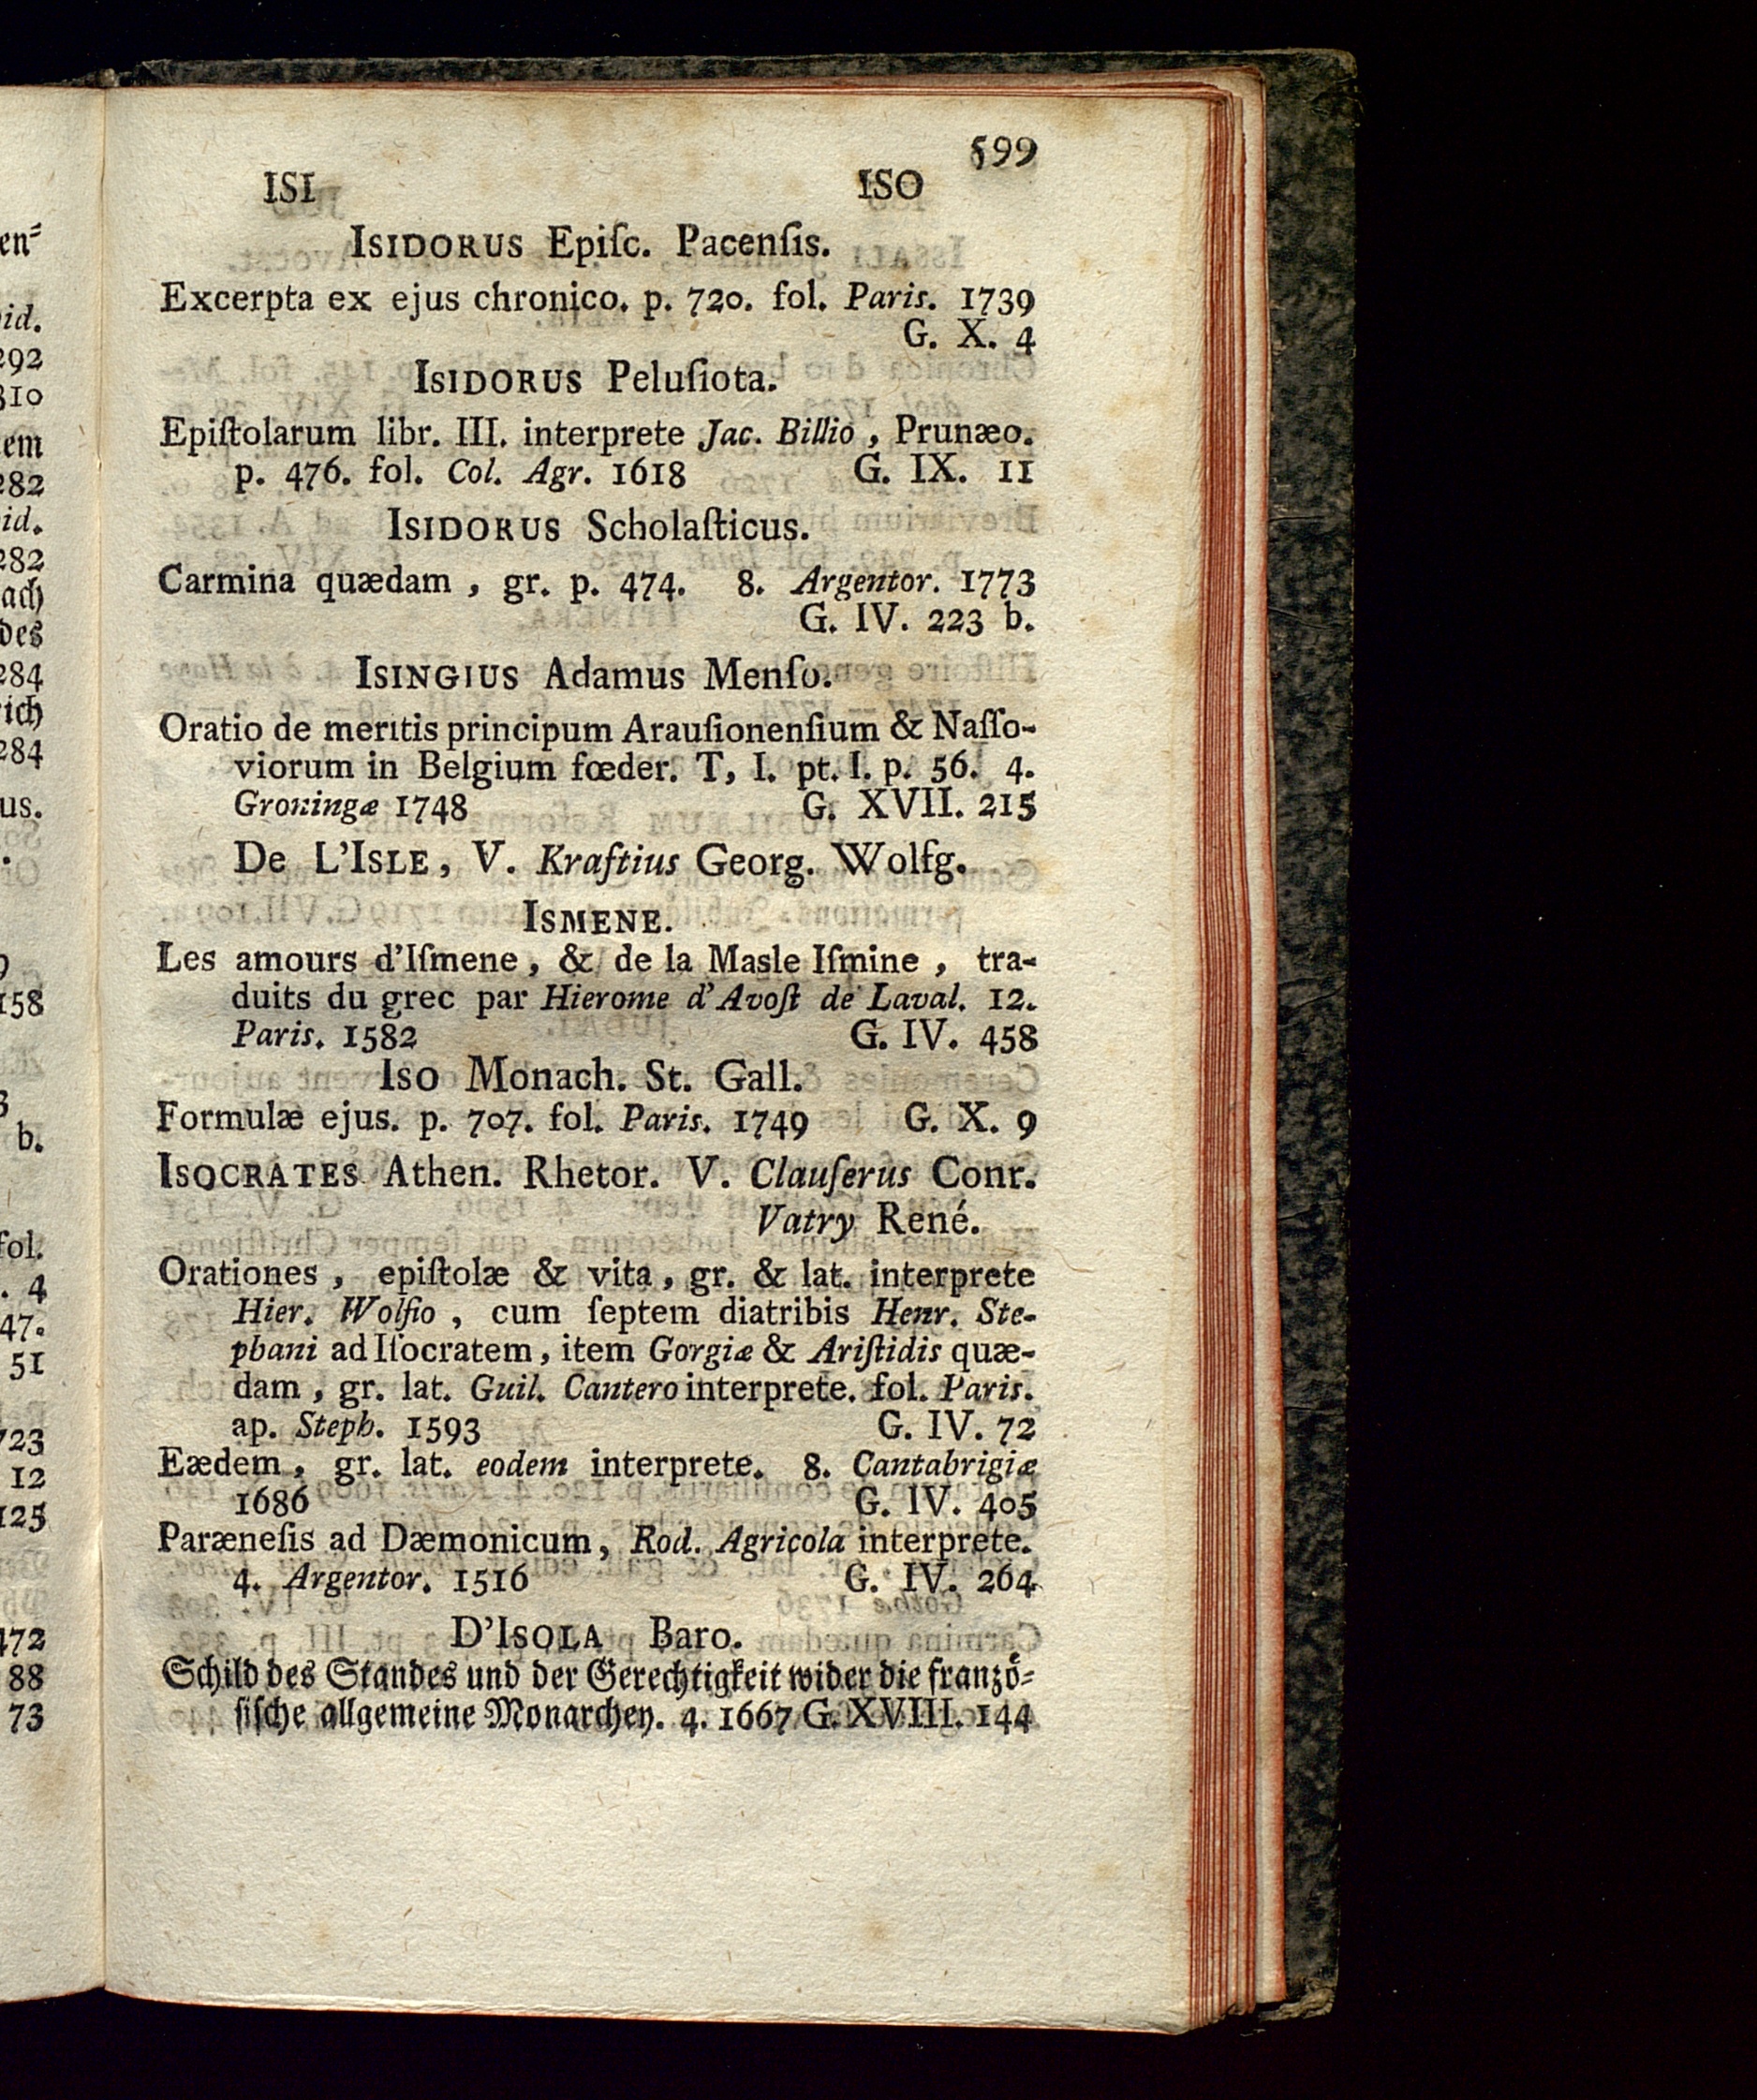 599
ISI ISO
ISIDORUS Epiſc. Pacenſis.
Excerpta ex ejus chronico. p. 720. fol. Paris. 1739
G. X. 4
ISIDORUS Peluſiota.
Epiſtolarum libr. III. interprete Jac. Billio, Prunæo.
p. 476. fol. Col. Agr. 1618 G. IX. 11
ISIDORUS Scholaſticus.
Carmina quædam, gr. p. 474. 8. Argentor. 1773
G. IV. 223 b.
ISINGIUS Adamus Menſo.
Oratio de meritis principum Arauſionenſium & Naſſo-
viorum in Belgium fœder. T, I. pt. I. p. 56. 4.
Groningæ 1748 G. XVII. 215
De L'ISLE, V. Kraftius Georg. Wolfg.
ISMENE.
Les amours d'Iſmene, & de la Masle Iſmine, tra-
duits du grec par Hierome d'Avoſt de Laval. 12.
Paris. 1582 G. IV. 458
Iso Monach. St. Gall.
Formulæ ejus. p. 707. fol. Paris. 1749 G. X. 9
ISOCRATES Athen. Rhetor. V. Clauſerus Conr.
Vatry René.
Orationes, epiſtolæ & vita, gr. & lat. interprete
Hier. Wolfio, cum ſeptem diatribis Henr. Ste-
phani ad Iſocratem, item Gorgiæ & Ariſtidis quæ-
dam, gr. lat. Guil. Cantero interprete. fol. Paris.
ap. Steph. 1593 G. IV. 72
Eædem, gr. lat. eodem interprete. 8. Cantabrigiæ
1686 G. IV. 405
Paræneſis ad Dæmonicum, Rod. Agricola interprete.
4. Argentor. 1516 G. IV. 264
D'ISOLA Baro.
Schild des Standes und der Gerechtigkeit wider die franzö-
sische allgemeine Monarchey. 4. 1667 G. XVIII. 144